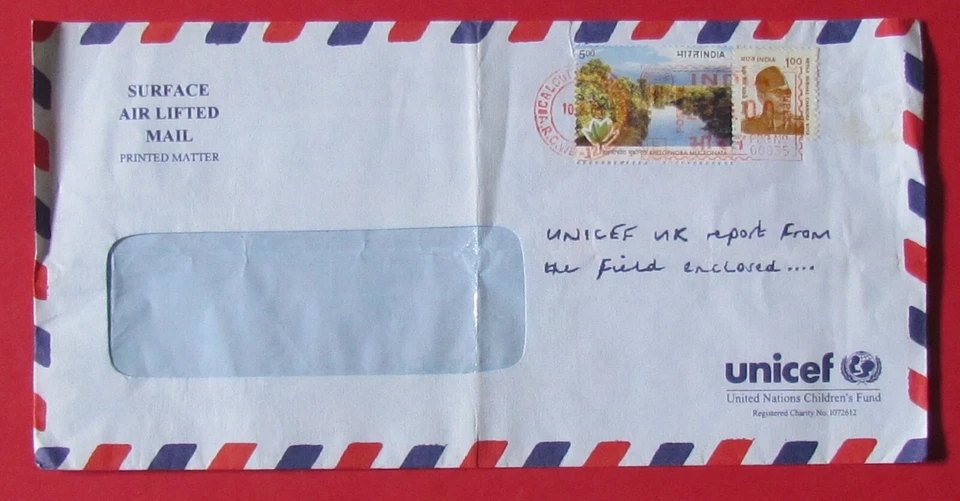 SURFACE
AIR LIFTED
MAIL
PRINTED MATTER
5.00
भारत INDIA
भारत INDIA
1.00
NETAJI SUBHAS CHANDRA BOSE
CALCU
10
R.C.
IND
00335
UNICEF UK report from
the field enclosed....
unicef
United Nations Children's Fund
Registered Charity No. 1072612